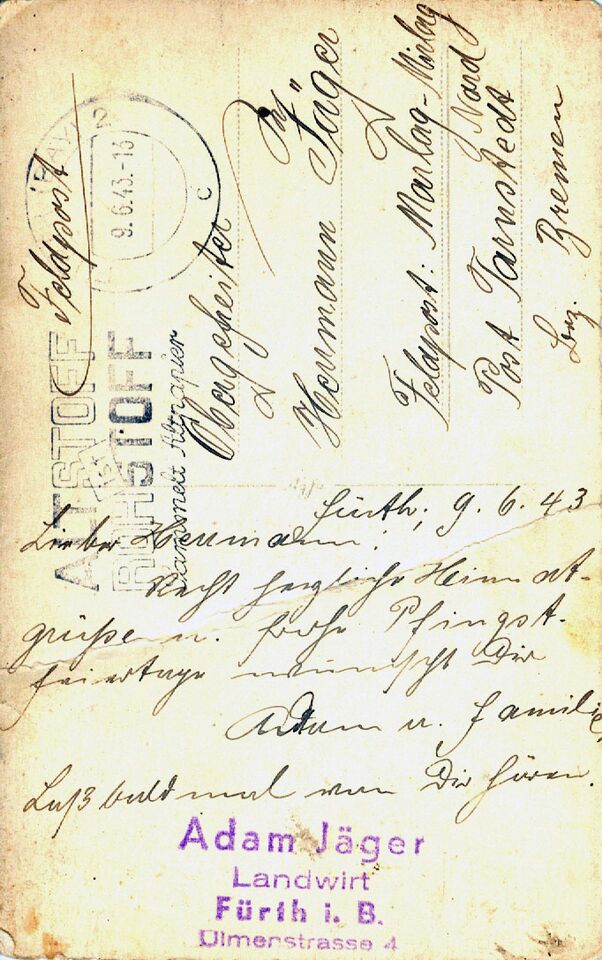 Feldpost
9.6.43.-16
c
ALTSTOFF
IST
ROHSTOFF
sammelt Altpapier
Obergefreiter
Hermann Jäger
Feldpost: Marlag-Milag
Nord
Post Tarnstedt
Bez. Bremen
Fürth, 9.6.43
Lieber Hermann!
Recht herzliche Heimat-
grüße u. frohe Pfingst-
feiertage wünscht Dir
Adam u. Familie,
Laß bald mal von Dir hören.
Adam Jäger
Landwirt
Fürth i. B.
Ulmenstrasse 4